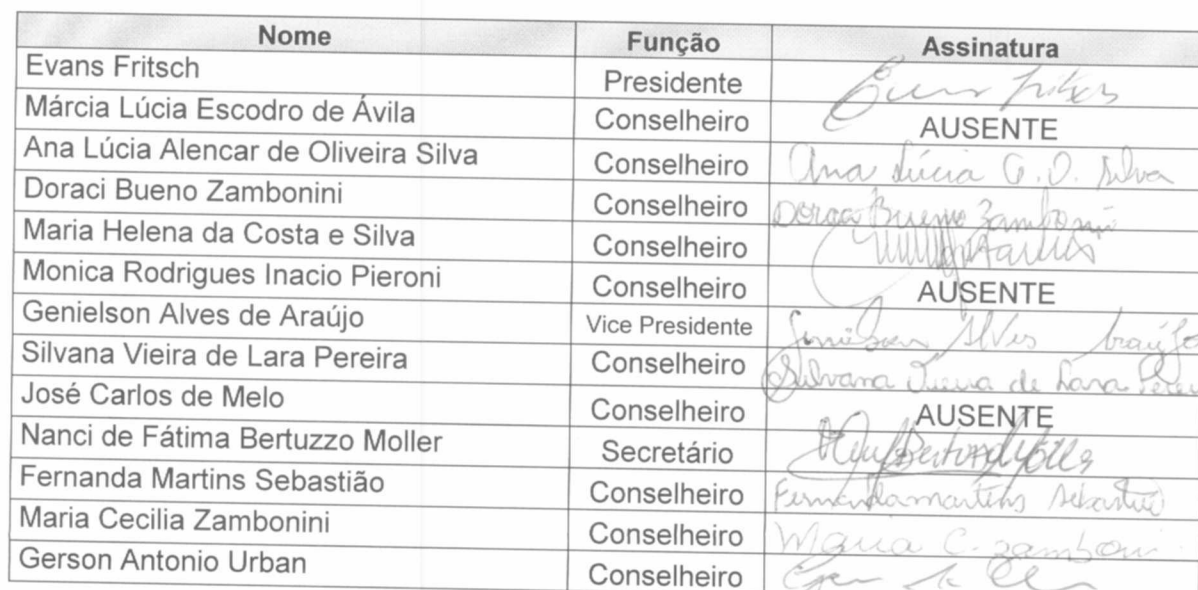 Nome Função Assinatura
Evans Fritsch Presidente Evans Fritsch
Márcia Lúcia Escodro de Ávila Conselheiro AUSENTE
Ana Lúcia Alencar de Oliveira Silva Conselheiro Ana Lúcia A. O. Silva
Doraci Bueno Zambonini Conselheiro Doraci Bueno Zambonini
Maria Helena da Costa e Silva Conselheiro
Monica Rodrigues Inacio Pieroni Conselheiro AUSENTE
Genielson Alves de Araújo Vice Presidente Genielson Alves Araújo
Silvana Vieira de Lara Pereira Conselheiro Silvana Vieira de Lara Perei
José Carlos de Melo Conselheiro AUSENTE
Nanci de Fátima Bertuzzo Moller Secretário
Fernanda Martins Sebastião Conselheiro Fernanda martins Sebastião
Maria Cecilia Zambonini Conselheiro Maria C. Zambonini
Gerson Antonio Urban Conselheiro